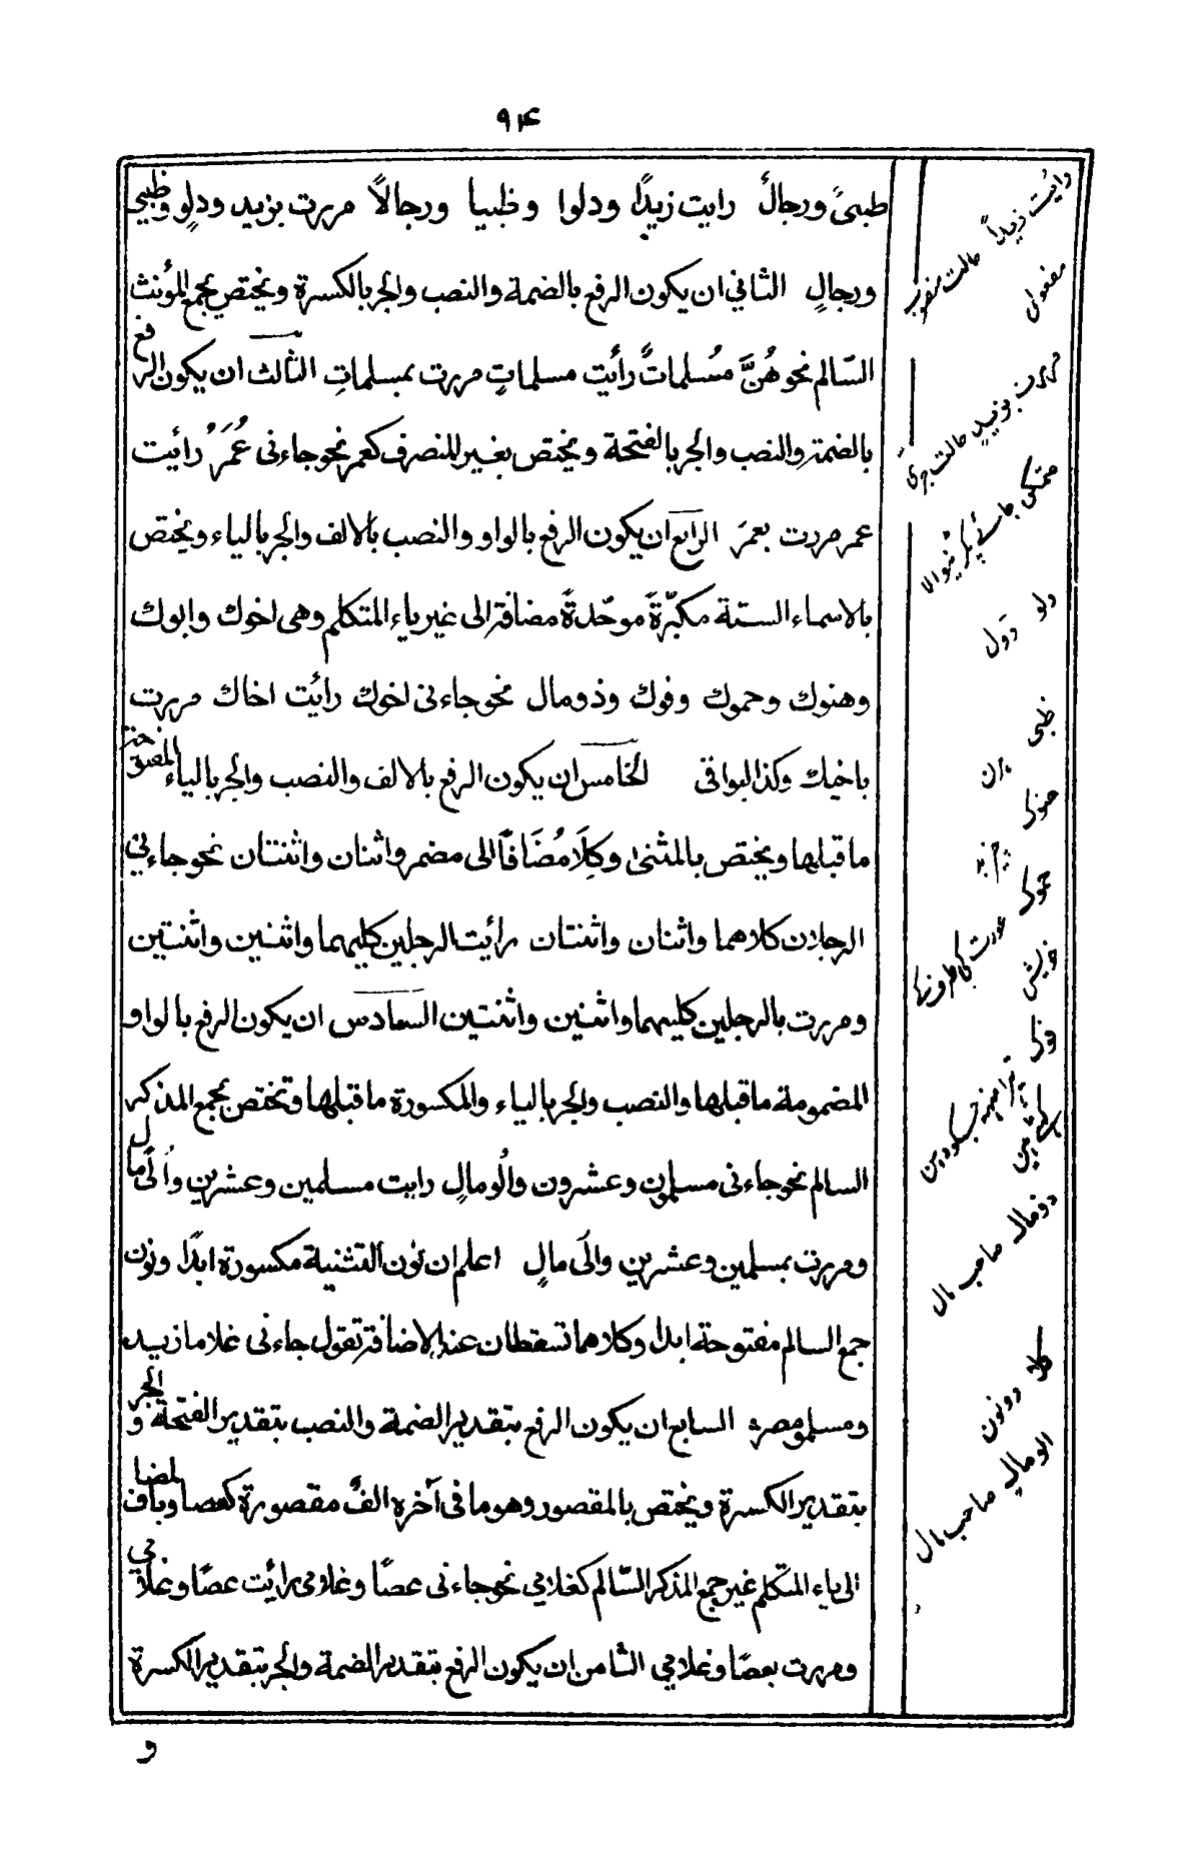 ۹۴
ظبىٌ ورجالٌ رایت زیدًا ودلوا وظبیا ورجالاً مررت بزید ودلوٍ وظبيٍ
ورجالٍ الثاني ان یکون الرفع بالضمة والنصب والجر بالکسرة ویختص بجمع المؤنث
السّالم نحو هُنَّ مُسلماتٌ رأیت مسلماتٍ مررت بمسلماتٍ الثالث ان یکون الرفع
بالضمة والنصب والجر بالفتحة ویختص بغیر المنصرف کعمر نحو جاءنی عُمَرُ رأیت
عمر مررت بعمرَ الرابع ان یکون الرفع بالواو والنصب بالالف والجر بالیاء ویختص
بالاسماء الستة مکبّرةً موحّدةً مضافة الی غیر یاء المتکلم وهی اخوك وابوك
وهنوك وحموك وفوك وذومال نحو جاءنی اخوك رأیت اخاك مررت
باخیك وکذا البواقی الخامس ان یکون الرفع بالالف والنصب والجر بالیاء المفتوحة
ما قبلها ویختص بالمثنیٰ وکِلَا مُضَافًا الی مضمر واثنان واثنتان نحو جاءنی
الرجلان کلاهما واثنان واثنتان رأیت الرجلین کلیهما واثنین واثنتین
ومررت بالرجلین کلیهما واثنین واثنتین السادس ان یکون الرفع بالواو
المضمومة ما قبلها والنصب والجر بالیاء والمکسورة ما قبلها وتختص بجمع المذکر
السالم نحو جاءنی مسلمون وعشرون والُو مالٍ رایت مسلمین وعشرین واُلی مال
ومررت بمسلمین وعشرین والَی مالٍ اعلم ان نون التثنیة مکسورة ابدًا ونون
جمع السالم مفتوحة ابدا وکلاهما تسقطان عند الاضافة تقول جاءنی غلاما زید
ومسلمو مصر السابع ان یکون الرفع بتقدیر الضمة والنصب بتقدیر الفتحة والجر
بتقدیر الکسرة ویختص بالمقصور وهو ما فی آخره الفٌ مقصورة کعصا وبالمضاف
الی یاء المتکلم غیر جمع المذکر السّالم کغلامي نحو جاءنی عصًا وغلامی رأیت عصًا وغلامي
ومررت بعصًا وغلامي الثامن ان یکون الرفع بتقدیر الضمة والجر بتقدیر الکسرة
و
رأیت زیداً حالت
مفعول
مررت بزیدٍ حالت جری
متمکن جائے پکڑنیوالا
دلو ڈول
ظبی ہرن
ھنوک
حموک
عورت کی طرف
خویش
فوک
ذومال صاحب مال
کلا دونون
الو مالٍ صاحب مال